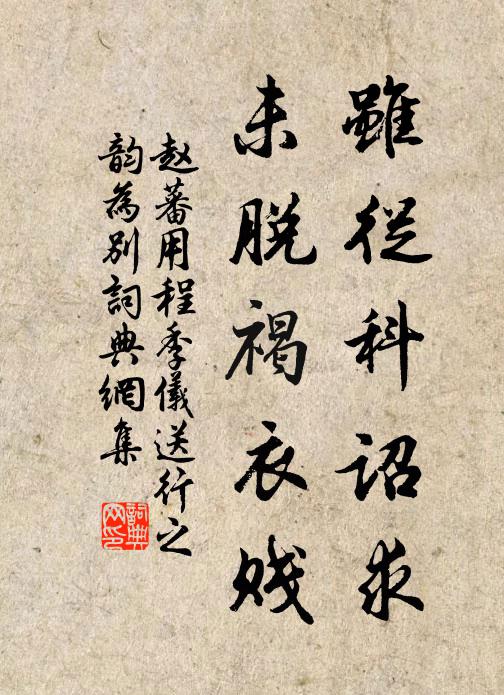 雖從科詔求
未脱褐衣贱
赵蕃用程季儀送行之
韵為别詞典網集
詞典网印